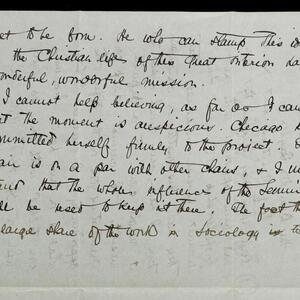 et to be born. He who can stamp this id
the Christian life of this great interior ha
wonderful, wonderful mission.
I cannot help believing, as far as I can
at the moment is auspicious. Chicago h
ommitted herself firmly to the project.
air is on a par with other chairs, & I
that the whole influence of the Semin
ll be used to keep it there. The fact th
large share of the work in Sociology is to